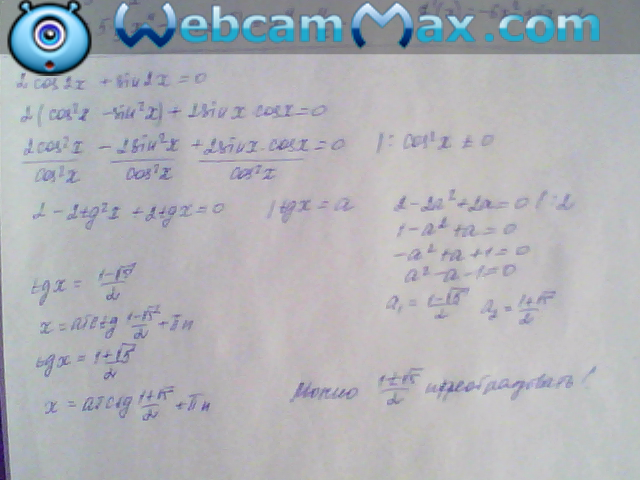 WebcamMax.com
2cos2x + sin2x = 0
2(cos²x - sin²x) + 2sinx cosx = 0
2cos²x/cos²x - 2sin²x/cos²x + 2sinx·cosx/cos²x = 0 |: cos²x ≠ 0
2 - 2tg²x + 2tgx = 0 | tgx = a
2 - 2a² + 2a = 0 |:2
1 - a² + a = 0
-a² + a + 1 = 0
a² - a - 1 = 0
a₁ = (1-√5)/2 a₂ = (1+√5)/2
tgx = (1-√5)/2
x = arctg (1-√5)/2 + πn
tgx = (1+√5)/2
x = arctg (1+√5)/2 + πn
Можно (1±√5)/2 преобразовать!